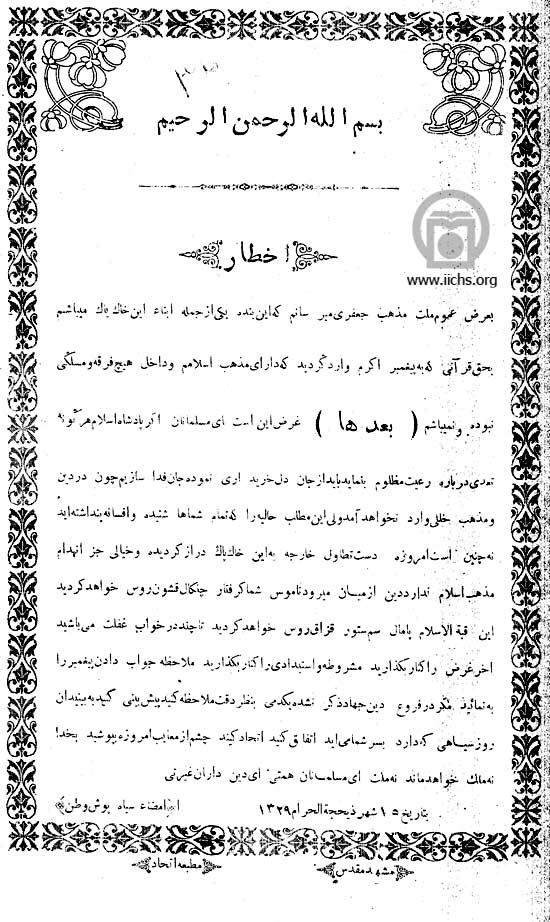 بسم الله الرحمن الرحیم
www.iichs.org
اخطار
بعرض عموم ملت مذهب جعفری میرسانم که این بنده یکی از جمله ابناء این خاک پاک میباشم
بحق قرآنی که به پیغمبر اکرم وارد گردید که دارای مذهب اسلامم و داخل هیچ فرقه و مسلکی
نبوده و نمیباشم ( بعدها ) غرض این است ای مسلمانان اگر پادشاه اسلام هر گونه
تعدی درباره رعیت مظلوم بنماید باید از جان دل خریداری نموده جان فدا سازیم چون در دین
و مذهب خللی وارد نخواهد آمد ولی این مطلب حالیه را که تمام شماها شنیده و افسانه پنداشته‌اید
نه چنین است امروزه دست تطاول خارجه به این خاک پاک دراز گردیده و خیالی جز انهدام
مذهب اسلام ندارد دین از میان میرود ناموس شما گرفتار چنگال قشون روس خواهد گردید
این قبة الاسلام پامال سم ستور قزاق روس خواهد گردید تا چند در خواب غفلت می‌باشید
اخر غرض را کنار بگذارید مشروطه و استبدادی را کنار بگذارید ملاحظه جواب دادن پیغمبر را
به نمائید مگر در فروع دین جهاد ذکر نشده بکدمی بنظر دقت ملاحظه کنید پیش بینی کنید به بینیدان
روز سیاهی که دارد بسر شما می‌اید اتفاق کنید اتحاد کیند چشم از معایب امروزه بپوشید بخدا
نه ملک خواهد ماند نه ملت ای مسلمانان همتی ای دین داران غیرتی
بتاریخ ۱۵ شهر ذیحجة الحرام ۱۳۲۹ امضاء سیاه پوش وطن
مشهد مقدس مطبعه اتحاد